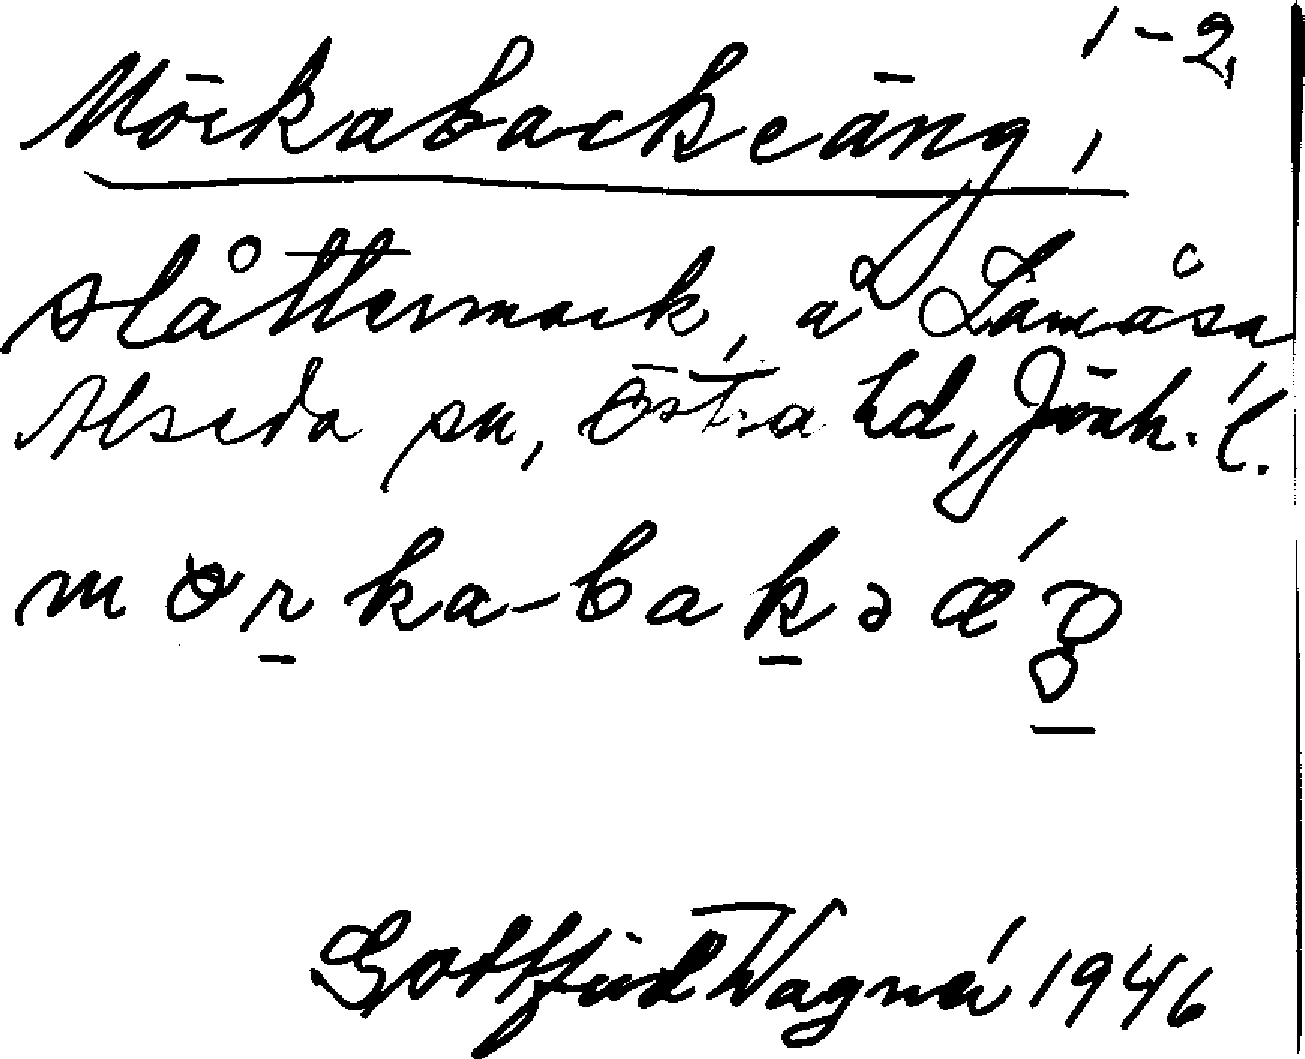 1-2,
Mörkabackeäng,
slåttermark, å Lämåsa
Alseda sn, Östra hd, Jönk. l.
mörka-bakəǽŋ
Gottfrid Wagnér 1946